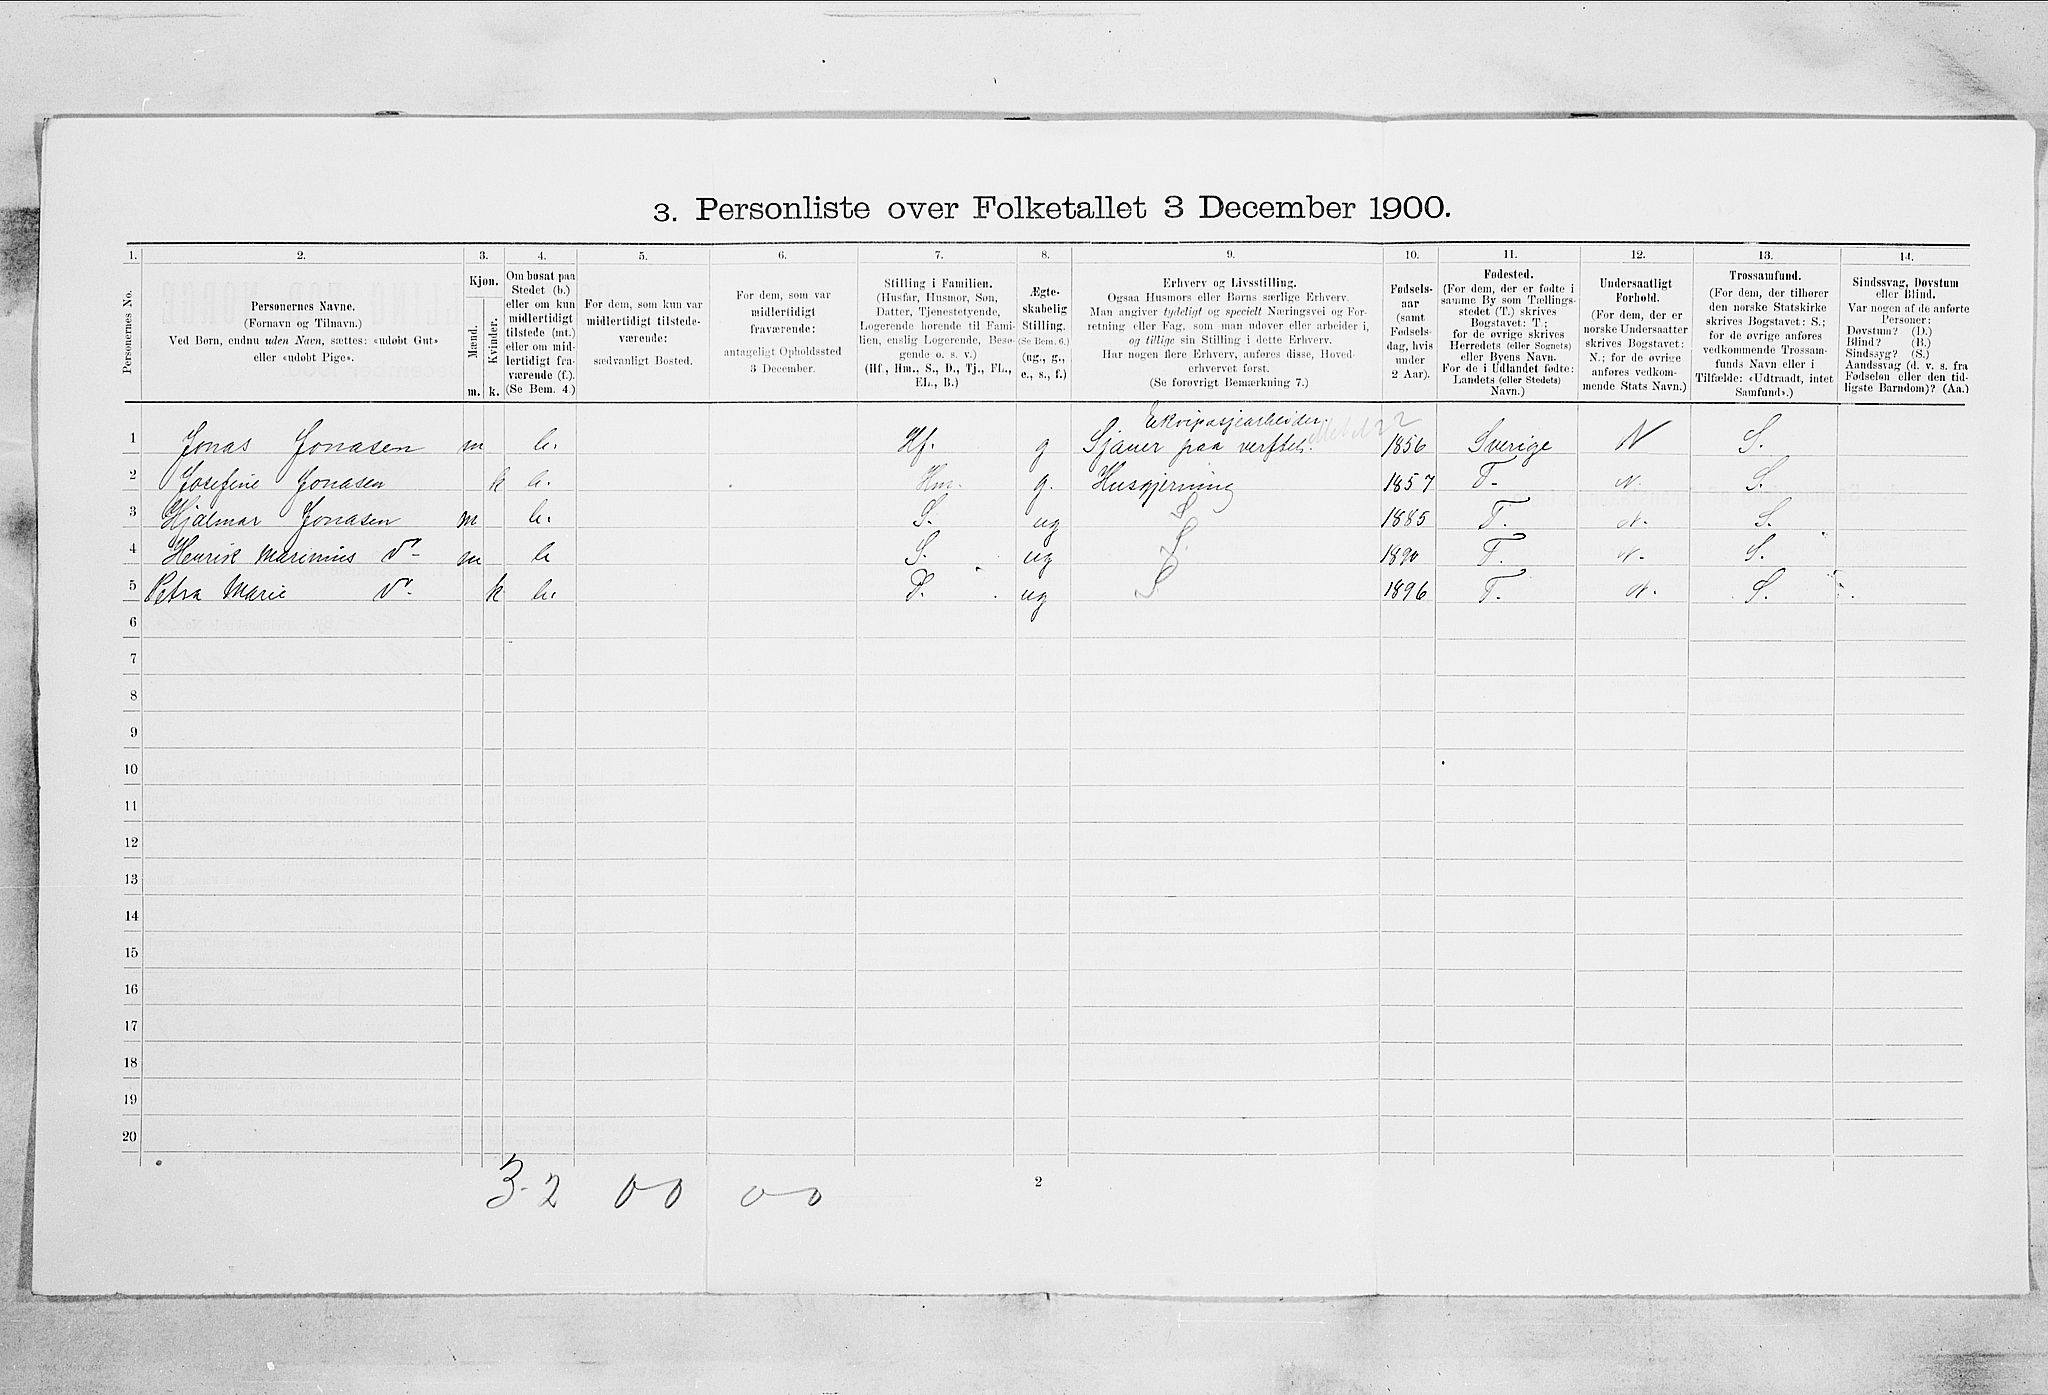 3. Personliste over Folketallet 3 December 1900.
1. 2. 3. 4. 5. 6. 7. 8. 9. 10. 11. 12. 13. 14.
Personernes No.
Personernes Navne.
(Fornavn og Tilnavn.)
Ved Børn, endnu uden Navn, sættes: «udøbt Gut»
eller «udøbt Pige».
Kjøn.
Mænd.
Kvinder.
m. k.
Om bosat paa
Stedet (b.)
eller om kun
midlertidigt
tilstede (mt.)
eller om mid-
lertidigt fra-
værende (f.)
(Se Bem. 4.)
For dem, som kun var
midlertidigt tilstede-
værende:
sædvanligt Bosted.
For dem, som var
midlertidigt
fraværende:
antageligt Opholdssted
3 December.
Stilling i Familien.
(Husfar, Husmor, Søn,
Datter, Tjenestetyende,
Logerende hørende til Fami-
lien, enslig Logerende, Besø-
gende o. s. v.)
(Hf., Hm., S., D., Tj., FL.,
EL., B.)
Ægte-
skabelig
Stilling.
(Se Bem. 6.)
(ug., g.,
e., s., f.)
Erhverv og Livsstilling.
Ogsaa Husmors eller Børns særlige Erhverv.
Man angiver tydeligt og specielt Næringsvei og For-
retning eller Fag, som man udøver eller arbeider i,
og tillige sin Stilling i dette Erhverv.
Har nogen flere Erhverv, anføres disse, Hoved-
erhvervet først.
(Se forøvrigt Bemærkning 7.)
Fødsels-
aar
(samt
Fødsels-
dag, hvis
under
2 Aar).
Fødested.
(For dem, der er fødte i
samme By som Tællings-
stedet (T.) skrives
Bogstavet: T;
for de øvrige skrives
Herredets (eller Sognets)
eller Byens Navn.
For de i Udlandet fødte:
Landets (eller Stedets)
Navn.)
Undersaatligt
Forhold.
(For dem, der er
norske Undersaatter
skrives Bogstavet:
N.; for de øvrige
anføres vedkom-
mende Stats Navn.)
Trossamfund.
(For dem, der tilhører
den norske Statskirke
skrives Bogstavet: S.;
for de øvrige anføres
vedkommende Trossam-
funds Navn eller i
Tilfælde: «Udtraadt, intet
Samfund».)
Sindssvag, Døvstum
eller Blind.
Var nogen af de anførte
Personer:
Døvstum? (D.)
Blind? (B.)
Sindssyg? (S.)
Aandssvag (d. v. s. fra
Fødselen eller den tid-
ligste Barndom)? (Aa.)
Ekvipasjearbeider
1 Jonas Jonasen m b. Hf. g Sjauer paa verftet. 1856 Sverige N S.
2 Josefine Jonasen k b. Hm. g. Husgjerning 1857 T. N. S.
3 Hjalmar Jonasen m b. S. ug S 1885 T. N. S.
4 Henrik Marinius Do m b S. ug S. 1890 T. N. S.
5 Petra Marie Do k b. D. ug S. 1896 T. N. S.
6
7
8
9
10
11
12
13
14
15
16
17
18
19
20
3-2 00 00
2